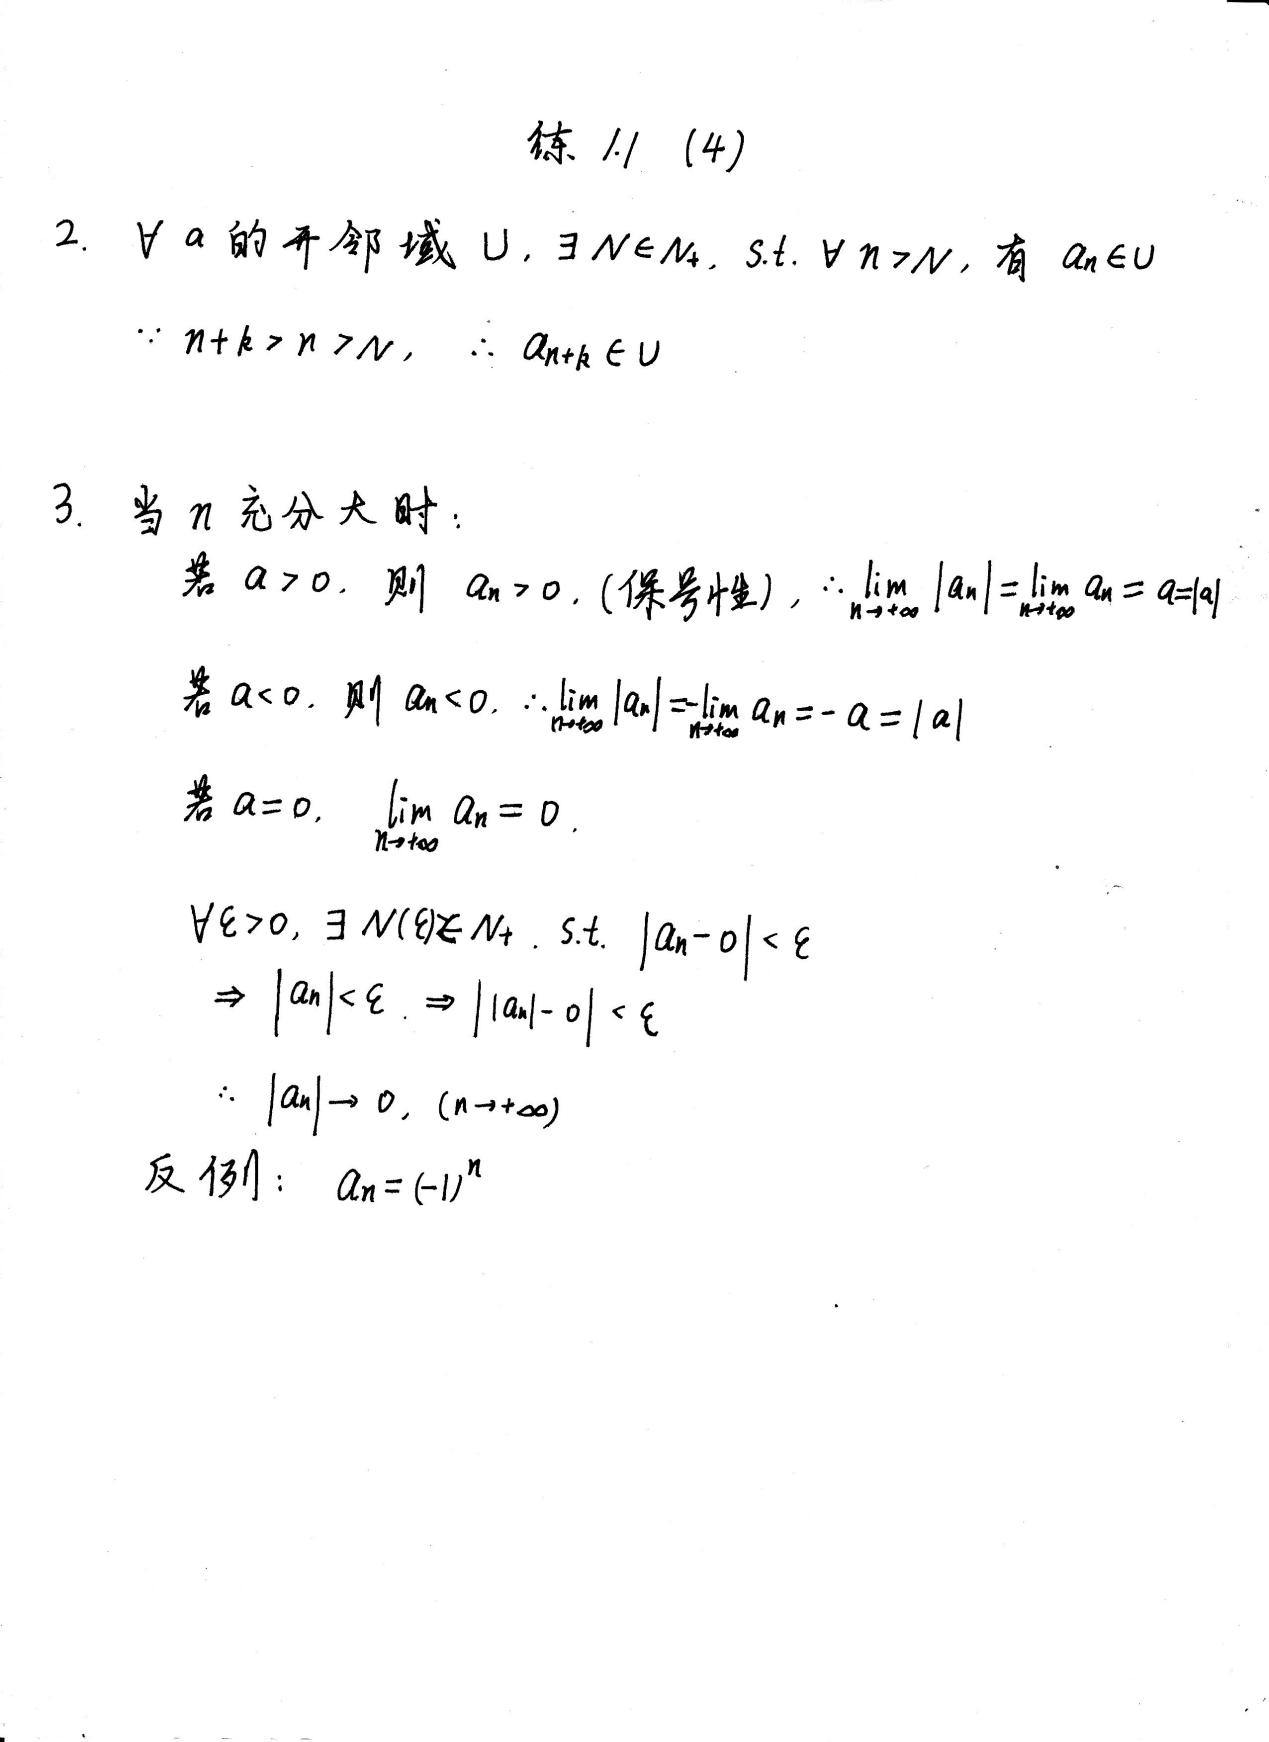 练 1.1 (4)
2. ∀ a 的开邻域 U, ∃ N∈N₊, s.t. ∀ n>N, 有 aₙ∈U
∵ n+k>n>N, ∴ aₙ₊ₖ∈U
3. 当 n 充分大时:
若 a>0, 则 aₙ>0, (保号性), ∴ lim_{n→+∞} |aₙ| = lim_{n→+∞} aₙ = a=|a|
若 a<0, 则 aₙ<0, ∴ lim_{n→+∞} |aₙ| = -lim_{n→+∞} aₙ = -a = |a|
若 a=0, lim_{n→+∞} aₙ = 0.
∀ε>0, ∃ N(ε)∈N₊. s.t. |aₙ-0|<ε
⇒ |aₙ|<ε. ⇒ ||aₙ|-0|<ε
∴ |aₙ|→0, (n→+∞)
反例: aₙ=(-1)ⁿ